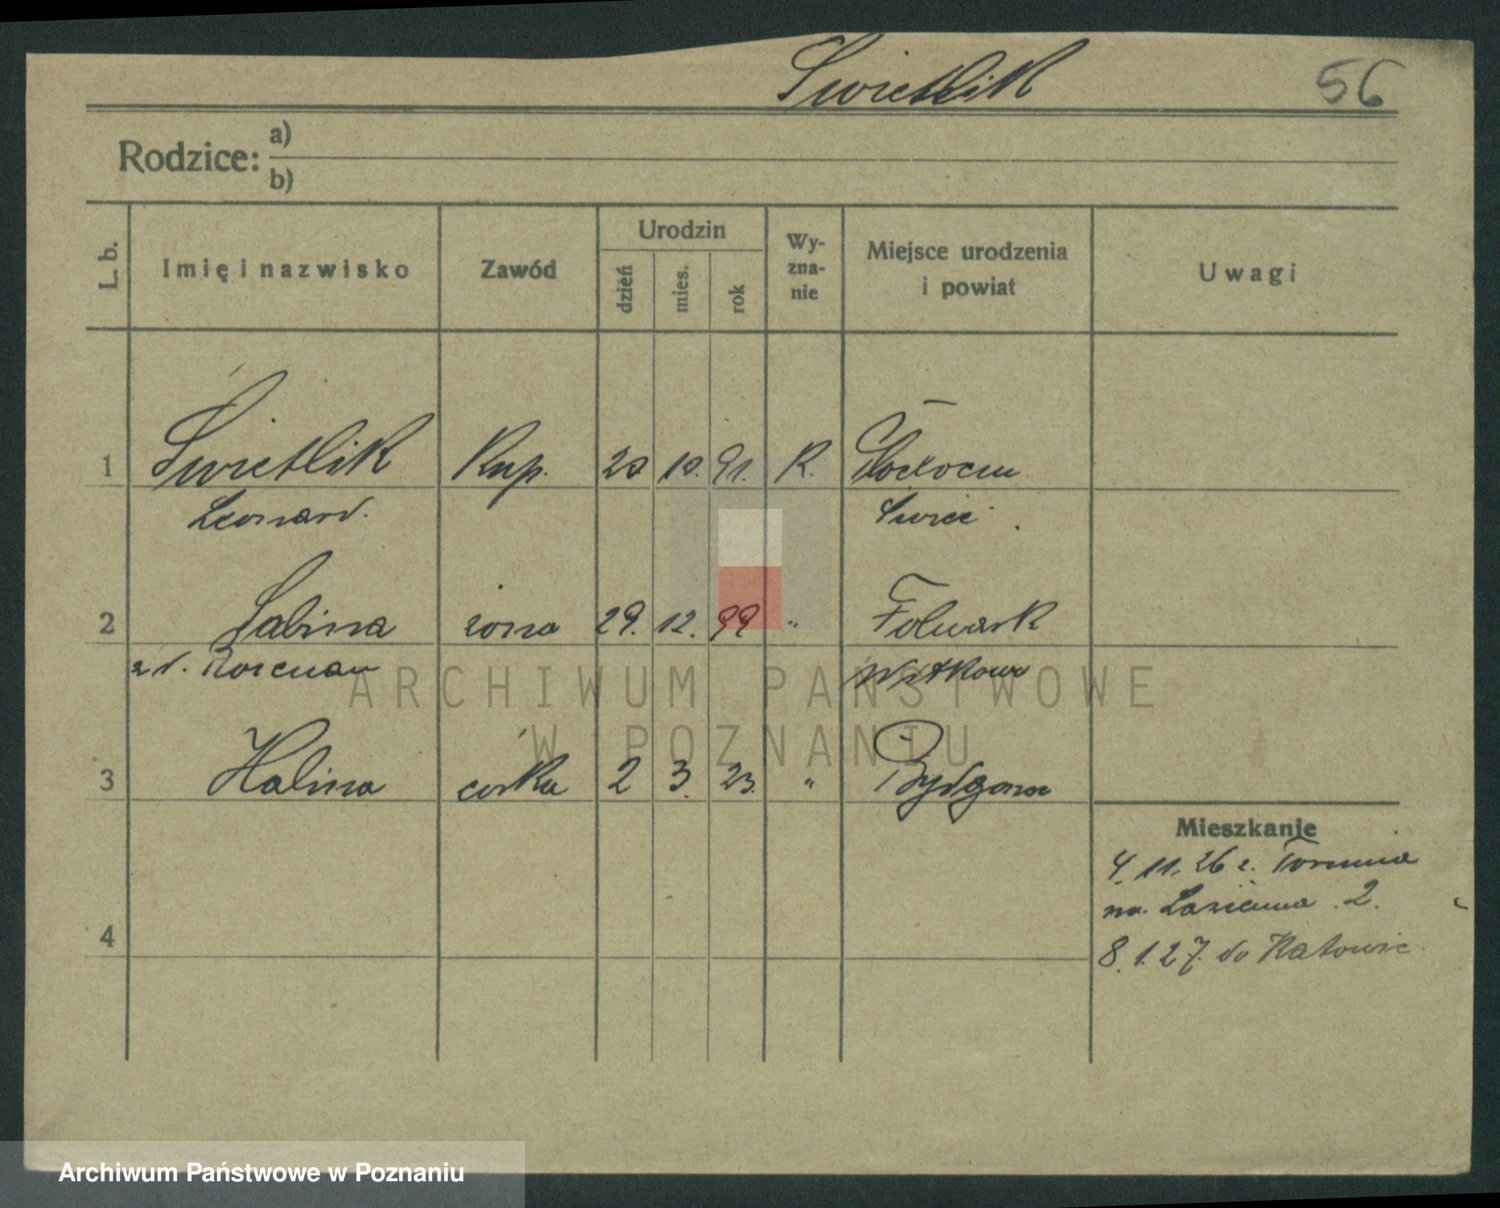 Swietlik 56
Rodzice: a)
b)
L. b. Imię i nazwisko Zawód Urodzin dzień mies. rok Wyznanie Miejsce urodzenia i powiat Uwagi
1 Świetlik Kup. 20 10. 91. R.
Leonard. Swiec
2 Sabina żona 29. 12. 99 " Folwark
z d. Witkowo
3 Halina córka 2 3. 23. " Bydgoszcz
Mieszkanie
4. 11. 26 z Torunia
na Łazienna 2.
4
8. 1. 27. do Katowic
ARCHIWUM PAŃSTWOWE
W POZNANIU
Archiwum Państwowe w Poznaniu